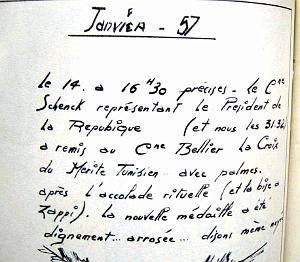 Janvier - 57
Le 14. à 16H30 précises - le Cne
Schenck représentant le Président de
la République (et nous les 31.32)
a remis au Cne Bellier la Croix
du Mérite Tunisien avec palmes.
après l'accolade rituelle (et la bise à
Zappi). la nouvelle médaille a été
dignement... arrosée... disons même